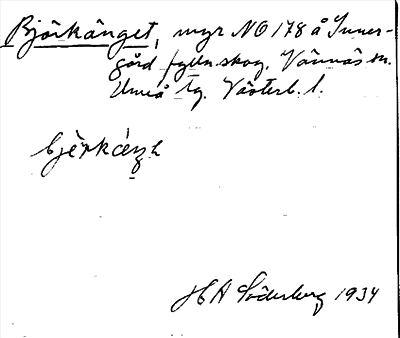 Björkänget, myr NO 178 å Inner-
gård fgeln. skog. Vännäs sn.
Umeå tg. Västerb. l.
HA Söderberg 1934